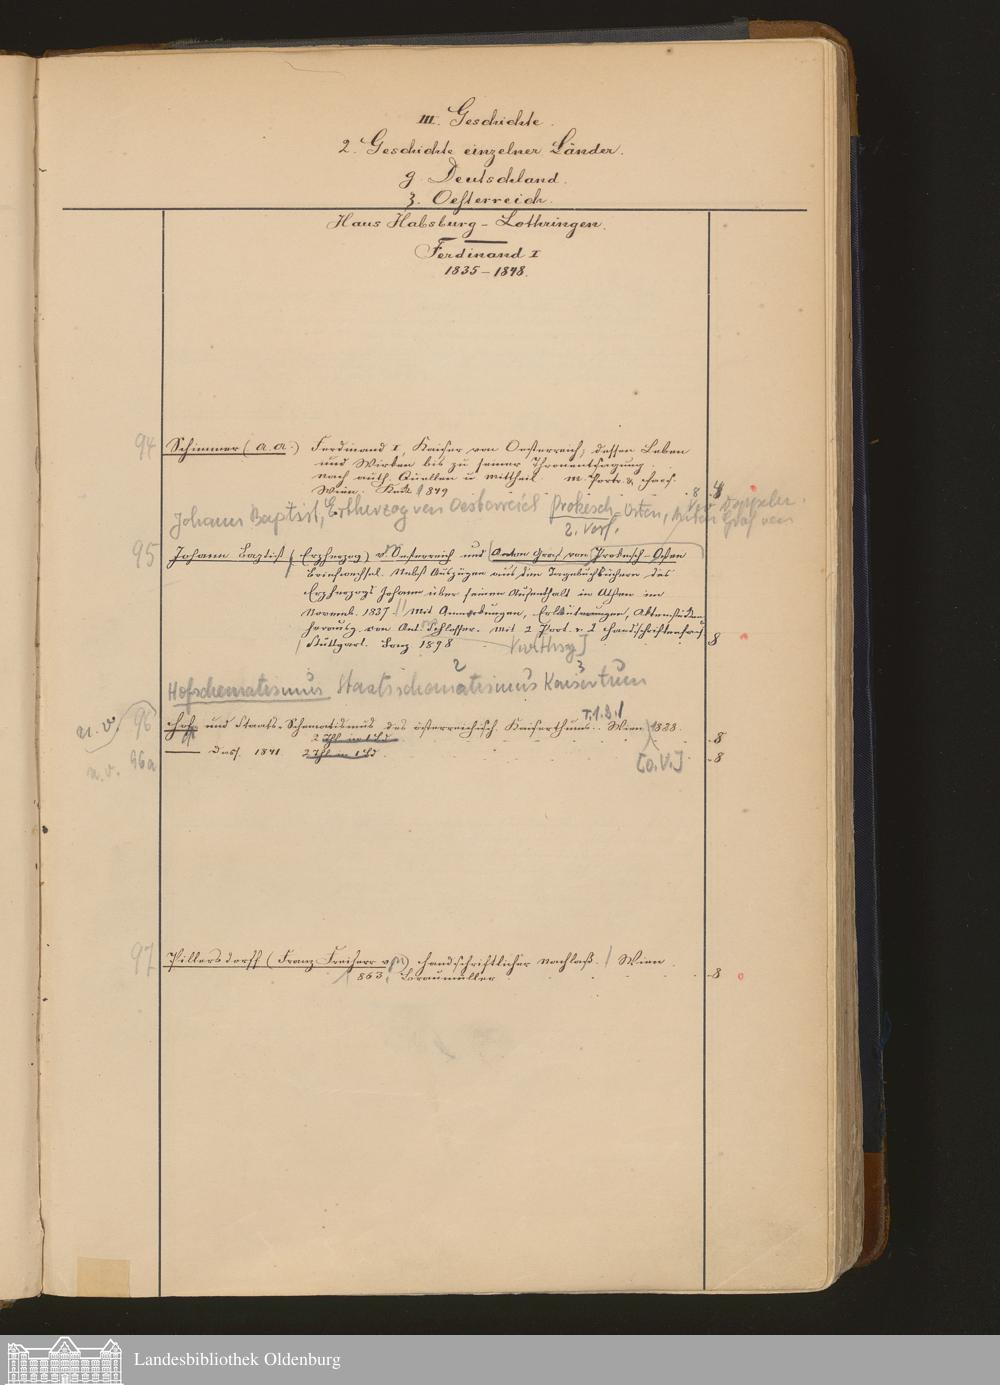 III. Geschichte.
2. Geschichte einzelner Länder.
g. Deutschland.
z. Oesterreich.
Haus Habsburg-Lothringen.
Ferdinand I
1835-1848.
94 Schimmer (A. A.) Ferdinand I, Kaiser von Oesterreich, dessen Leben
und Wirken bis zu seiner Thronentsagung.
nach auth. Quellen u. Mittheil. m. Portr. &
Wien. 1849 8
Johann Baptist, Erzherzog von Oesterreich Prokesch-Osten, Anton Graf von
2. Verf.
95 Johann Baptist (Erzherzog) v. Oesterreich und Anton Graf von Prokesch-Osten
Briefwechsel. Nebst Auszügen aus den Tagebuchblättern des
Erzherzogs Johann über seinen Aufenthalt in Athen im
Novemb. 1837. Mit Anmerkungen, Erläuterungen, Aktenstücken
herausg. von Ant. Schlossar. Mit 2 Port. u. 2 Handschriftenfacs.
Stuttgart. Bonz 1898 8
Hofschematismus Staatsschematismus Kaisertum
2 3
n. v. 96 Hof- und Staats-Schematismus des österreichisch. Kaiserthums. Wien 1838.
T. 1. 2.
2 Thl in 1 Bd 8
n. v. 96a Dass. 1841 2 Thl in 1 Bd [o. V.] 8
97 Pillersdorff (Franz Freiherr v.) Handschriftlicher Nachlaß. Wien
1863, Braumüller 8
Landesbibliothek Oldenburg